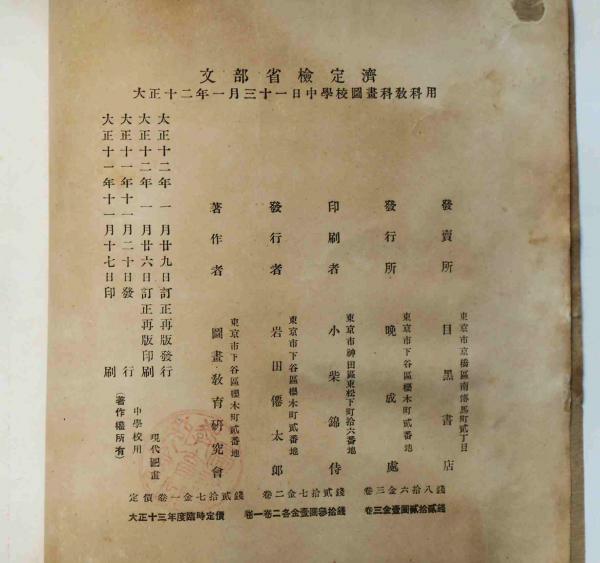 文部省檢定濟
大正十二年一月三十一日中學校圖畫科敎科用
大正十一年十一月十七日印刷
大正十一年十一月二十日發行
大正十二年一月廿六日訂正再版印刷
大正十二年一月廿九日訂正再版發行
(著作權所有)
中學校用
現代圖畫
著作者 圖畫敎育硏究會
東京市下谷區櫻木町貳番地
發行者 岩田僊太郎
東京市下谷區櫻木町貳番地
印刷者 小柴錦侍
東京市神田區東松下町拾六番地
發行所 晩成處
東京市下谷區櫻木町貳番地
發賣所 目黑書店
東京市京橋區南傳馬町貳丁目
定價卷一金七拾貳錢 卷二金七拾貳錢 卷三金六拾八錢
大正十三年度臨時定價 卷一卷二各金壹圓參拾錢 卷三金壹圓貳拾貳錢